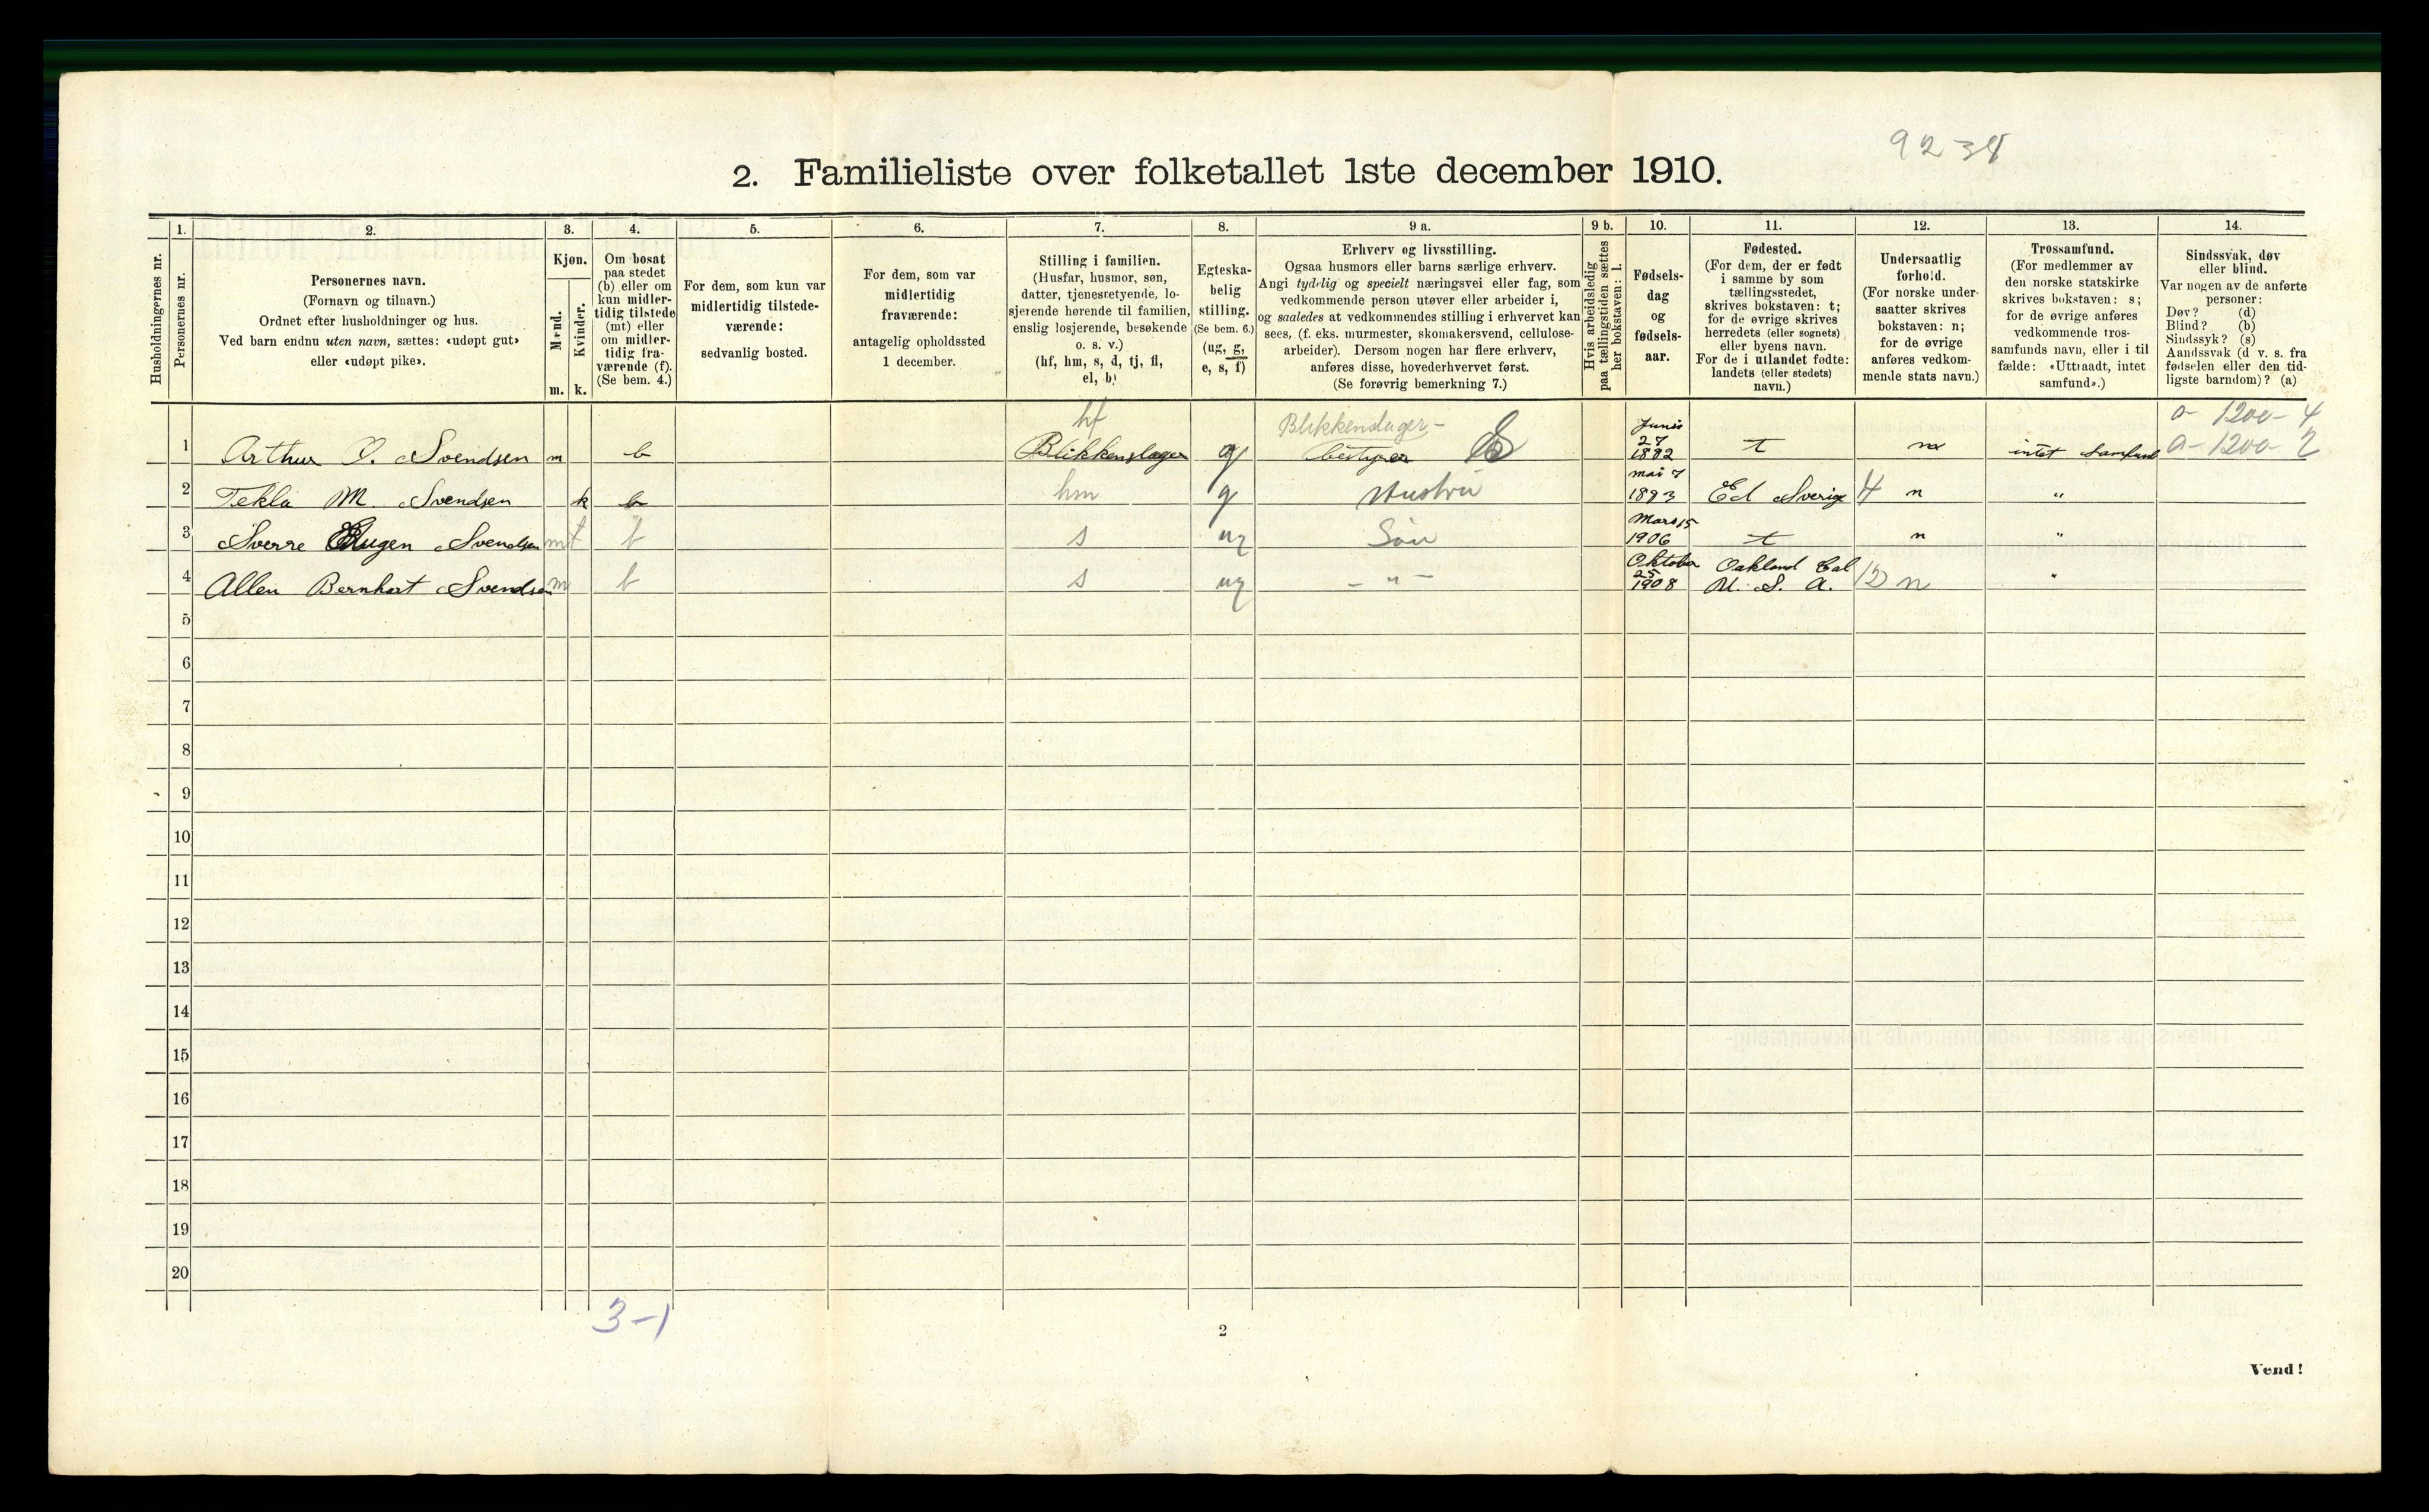 92 38
2. Familieliste over folketallet 1ste december 1910.
1. 2. 3. 4. 5. 6. 7. 8. 9 a. 9 b. 10. 11. 12. 13. 14.
Husholdningernes nr.
Personernes nr.
Personernes navn.
(Fornavn og tilnavn.)
Ordnet efter husholdninger og hus.
Ved barn endnu uten navn, sættes: «udøpt gut»
eller «udøpt pike».
Kjøn.
Mænd.
Kvinder.
m. k.
Om bosat
paa stedet
(b) eller om
kun midler-
tidig tilstede
(mt) eller
om midler-
tidig fra-
værende (f).
(Se bem. 4.)
For dem, som kun var
midlertidig tilstede-
værende:
sedvanlig bosted.
For dem, som var
midlertidig
fraværende:
antagelig opholdssted
1 december.
Stilling i familien.
(Husfar, husmor, søn,
datter, tjenestetyende, lo-
sjerende hørende til familien,
enslig losjerende, besøkende
o. s. v.)
(hf, hm, s, d, tj, fl,
el, b)
Egteska-
belig
stilling.
(Se bem. 6.)
(ug, g,
e, s, f)
Erhverv og livsstilling.
Ogsaa husmors eller barns særlige erhverv.
Angi tydelig og specielt næringsvei eller fag, som
vedkommende person utøver eller arbeider i,
og saaledes at vedkommendes stilling i erhvervet kan
sees, (f. eks. murmester, skomakersvend, cellulose-
arbeider). Dersom nogen har flere erhverv,
anføres disse, hovederhvervet først.
(Se forøvrig bemerkning 7.)
Hvis arbeidsledig
paa tællingstiden sættes
her bokstaven: l.
Fødsels-
dag
og
fødsels-
aar.
Fødested.
(For dem, der er født
i samme by som
tællingsstedet,
skrives bokstaven: t;
for de øvrige skrives
herredets (eller sognets)
eller byens navn.
For de i utlandet fødte:
landets (eller stedets)
navn.)
Undersaatlig
forhold.
(For norske under-
saatter skrives
bokstaven: n;
for de øvrige
anføres vedkom-
mende stats navn.)
Trossamfund.
(For medlemmer av
den norske statskirke
skrives bokstaven: s;
for de øvrige anføres
vedkommende tros-
samfunds navn, eller i til
fælde: «Uttraadt, intet
samfund».)
Sindssvak, døv
eller blind.
Var nogen av de anførte
personer:
Døv? (d)
Blind? (b)
Sindssyk? (s)
Aandssvak (d v. s. fra
fødselen eller den tid-
ligste barndom)? (a)
hf Blikkenslager- Junis a- 1200- 4
1 Arthur O. Svendsen m b Blikkenslager g bestyrer 27 1882 t n intet Samfund a- 1200- 2
2 Tekla M. Svendsen k b hm g Hustru mai 7 1893 Ed Sverige 4 n "
3 Sverre Eugen Svendsen m t b s ug Søn Mars 15 1906 t n "
4 Allen Bernhart Svendsen m b s ug - " - Oktober 25 1908 Oakland Cal U. S. A. 12 n "
5
6
7
8
9
10
11
12
13
14
15
16
17
18
19
20
3-1
2
Vend!